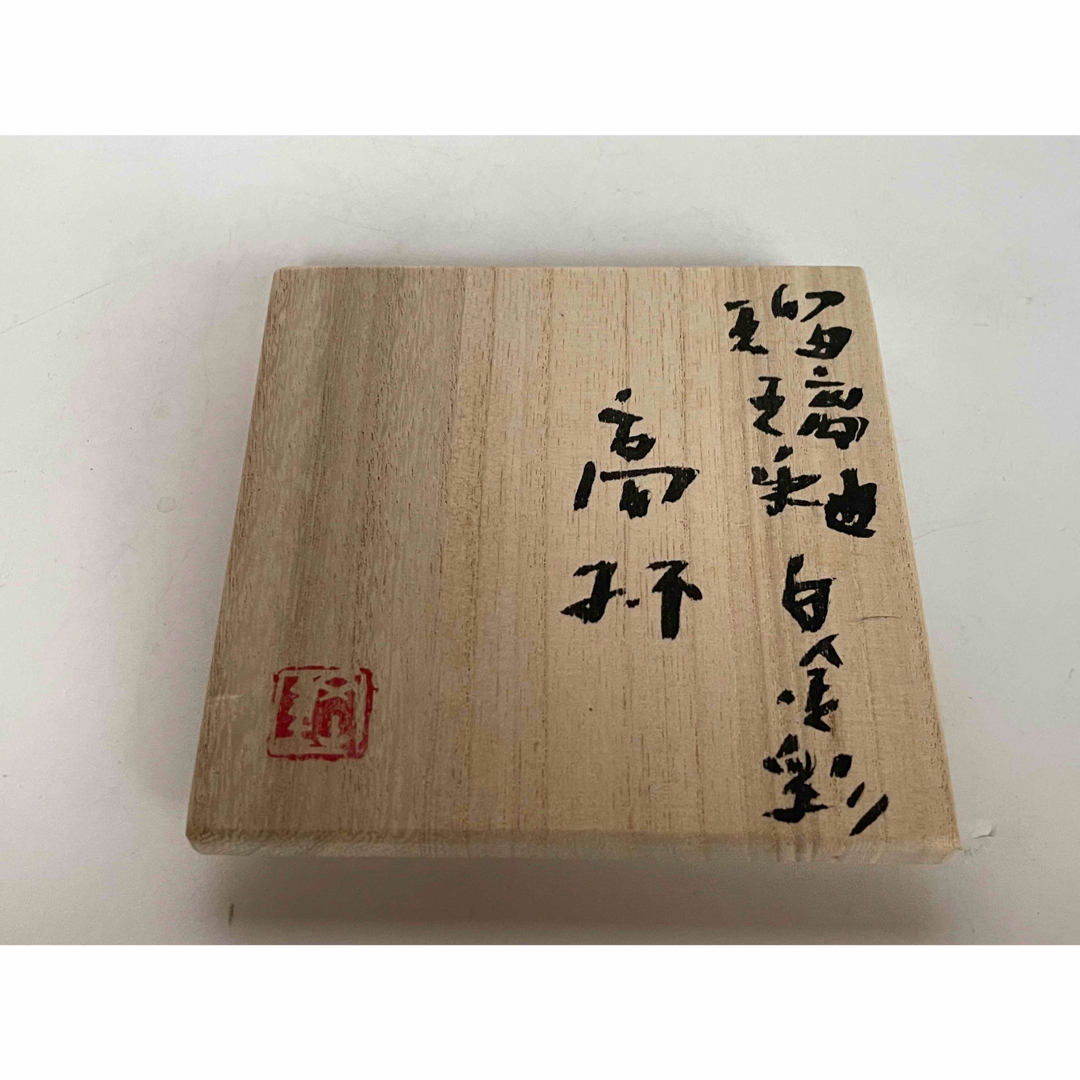 瑠璃釉白金彩
高杯